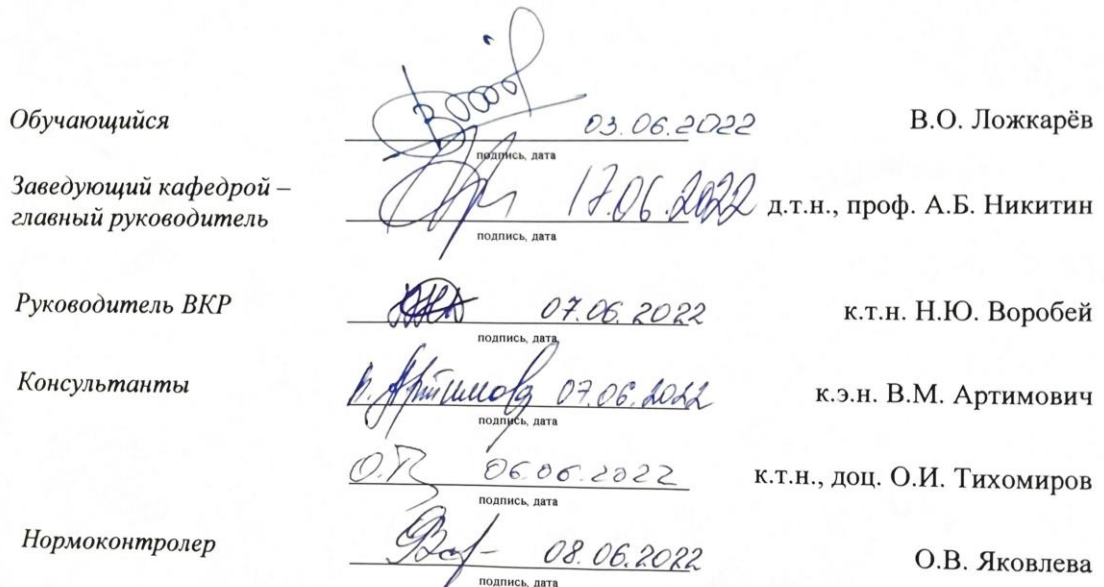 Обучающийся 03.06.2022 В.О. Ложкарёв
подпись, дата
Заведующий кафедрой –
главный руководитель 17.06.2022 д.т.н., проф. А.Б. Никитин
подпись, дата
Руководитель ВКР 07.06.2022 к.т.н. Н.Ю. Воробей
подпись, дата
Консультанты 07.06.2022 к.э.н. В.М. Артимович
подпись, дата
06.06.2022 к.т.н., доц. О.И. Тихомиров
подпись, дата
Нормоконтролер 08.06.2022 О.В. Яковлева
подпись, дата